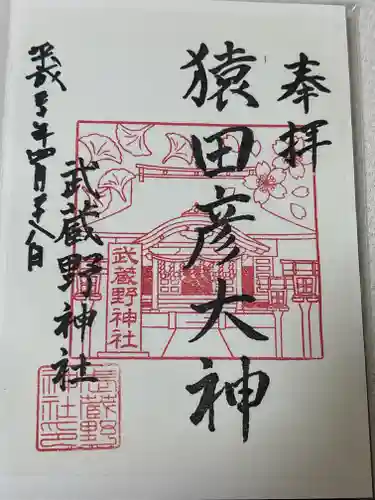 奉拝
猿田彦大神
武蔵野神社
武蔵野神社
平成 年四月 八日
武蔵野
神社印